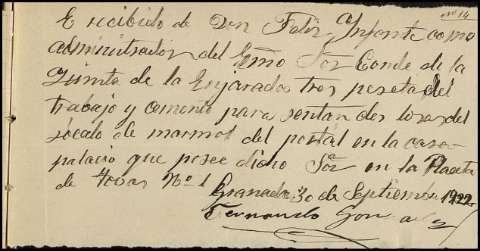 nº 14
E recibido de Don Felix Infante como
administrador del Exmo Sor Conde de la
Quinta de la Enjarada tres pesetas del
trabajo y cemento para sentar dos losas del
sócalo de marmol del portal en la casa
palacio que posee dicho Sor en la Placeta
de Tovar Nº 1
Granada 30 de Septiembre 1922
Fernando Gonzalez